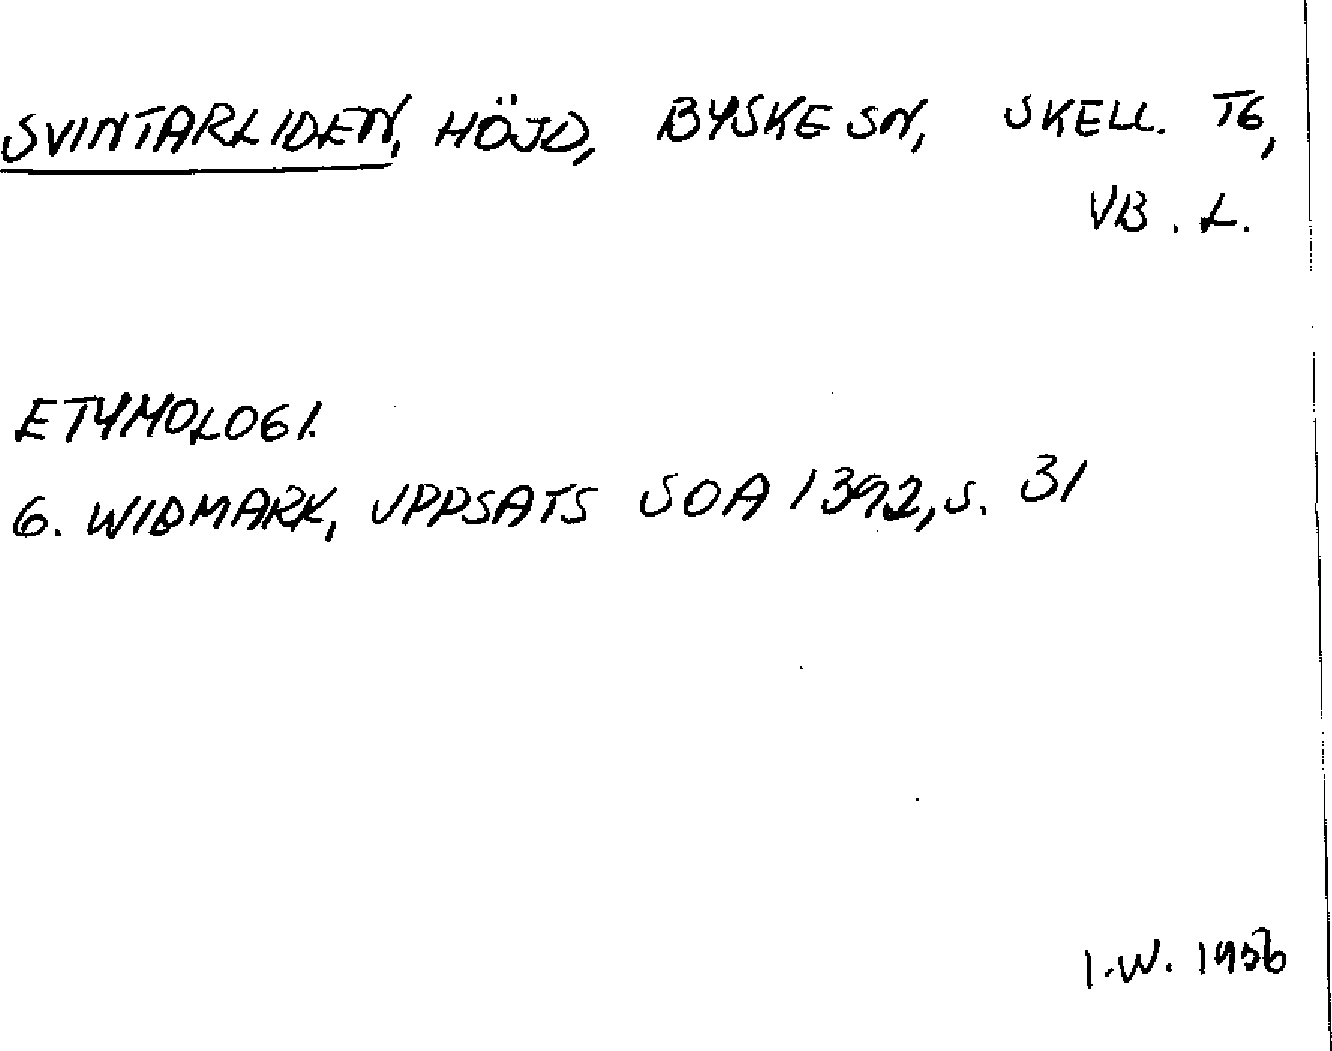 SVINTARLIDEN, HÖJD, BYSKE SN, SKELL. TG,
VB. L.
ETYMOLOGI.
G. WIDMARK, UPPSATS SOA 1392, S. 31
I.W. 1956